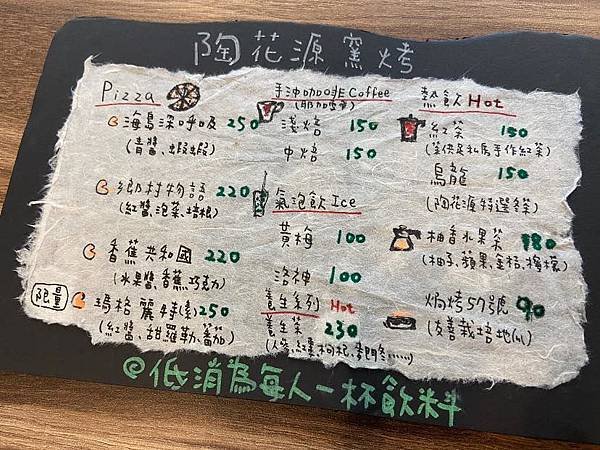 陶花源窯烤
Pizza
海島深呼吸 250
(青醬、蝦蝦)
鄉村物語 220
(紅醬、泡菜、培根)
香蕉共和國 220
(水果醬、香蕉、巧克力)
限量
瑪格麗特(素) 250
(紅醬、甜羅勒、蕃茄)
手沖咖啡Coffee
(耶加雪菲)
淺焙 150
中焙 150
氣泡飲Ice
黃梅 100
洛神 100
養生系列 Hot
養生茶 230
(人蔘、紅棗、枸杞、麥門冬......)
熱飲Hot
紅茶 150
私房手作紅茶)
烏龍 150
(陶花源特選冬茶)
柚香水果茶 180
(柚子、蘋果、金桔、檸檬)
焖烤57號 90
(友善栽培地瓜)
@低消為每人一杯飲料